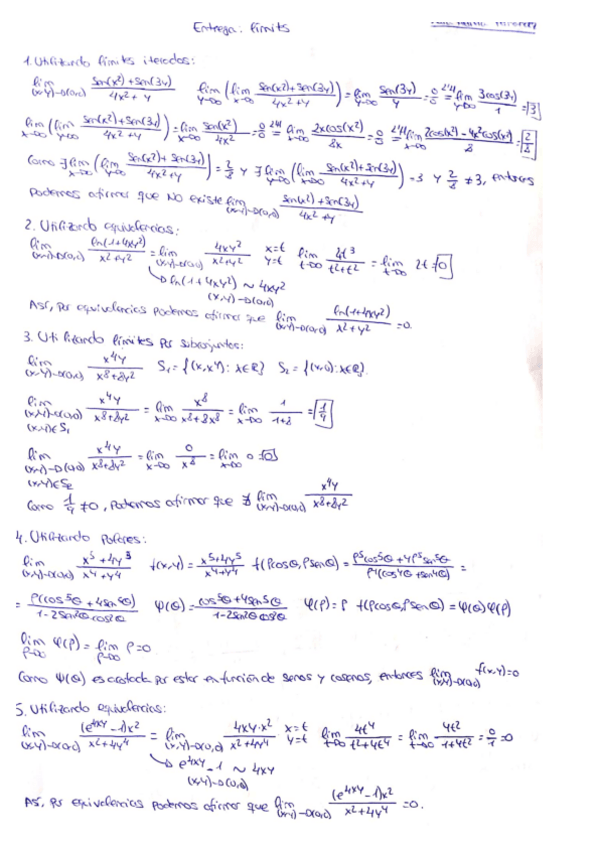 Entrega: límits
1. Utilizando límites iterados:
lim (x,y)→(0,0) (sen(x²)+sen(3y))/(4x²+y)   lim y→0 (lim x→0 (sen(x²)+sen(3y))/(4x²+y)) = lim y→0 sen(3y)/y = 0/0 =L'H lim y→0 3cos(3y)/1 = 3
lim x→0 (lim y→0 (sen(x²)+sen(3y))/(4x²+y)) = lim x→0 sen(x²)/4x² = 0/0 =L'H lim x→0 2xcos(x²)/8x = 0/0 =L'H lim x→0 (2cos(x²)-4x²cos(x²))/8 = 2/8
Como ∃ lim x→0 (lim y→0 (sen(x²)+sen(3y))/(4x²+y)) = 2/8 y ∃ lim y→0 (lim x→0 (sen(x²)+sen(3y))/(4x²+y)) = 3 y 2/8 ≠ 3, entonces
Podemos afirmar que NO existe lim (x,y)→(0,0) (sen(x²)+sen(3y))/(4x²+y)
2. Utilizando equivalencias:
lim (x,y)→(0,0) ln(1+4xy²)/(x²+y²) = lim (x,y)→(0,0) 4xy²/(x²+y²)   x=t y=t   lim t→0 4t³/(t²+t²) = lim t→0 2t = 0
ln(1+4xy²) ~ 4xy²
(x,y)→(0,0)
Así, por equivalencias podemos afirmar que lim (x,y)→(0,0) ln(1+4xy²)/(x²+y²) = 0.
3. Utilizando límites por subconjuntos:
lim (x,y)→(0,0) x⁴y/(x⁸+8y²)   S₁ = {(x,x⁴): x∈R}   S₂ = {(x,0): x∈R}.
lim (x,y)→(0,0) (x,y)∈S₁ x⁴y/(x⁸+8y²) = lim x→0 x⁸/(x⁸+8x⁸) = lim x→0 1/(1+8) = 1/9
lim (x,y)→(0,0) (x,y)∈S₂ x⁴y/(x⁸+8y²) = lim x→0 0/x⁸ = lim x→0 0 = 0
Como 1/9 ≠ 0, podemos afirmar que ∄ lim (x,y)→(0,0) x⁴y/(x⁸+8y²)
4. Utilizando Polares:
lim (x,y)→(0,0) (x⁵+4y⁵)/(x⁴+y⁴)   f(x,y) = (x⁵+4y⁵)/(x⁴+y⁴)   f(ρcosθ, ρsenθ) = (ρ⁵cos⁵θ + 4ρ⁵sen⁵θ)/(ρ⁴(cos⁴θ+sen⁴θ)) =
= ρ(cos⁵θ + 4sen⁵θ)/(1-2sen²θcos²θ)   Ψ(θ) = (cos⁵θ+4sen⁵θ)/(1-2sen²θcos²θ)   φ(ρ) = ρ   f(ρcosθ, ρsenθ) = φ(ρ)Ψ(θ)
lim ρ→0 φ(ρ) = lim ρ→0 ρ = 0
Como Ψ(θ) es acotada por estar en función de senos y cosenos, entonces lim (x,y)→(0,0) f(x,y) = 0
5. Utilizando equivalencias:
lim (x,y)→(0,0) (e⁴ˣʸ-1)x²/(x²+4y⁴) = lim (x,y)→(0,0) 4xy·x²/(x²+4y⁴)   x=t y=t   lim t→0 4t⁴/(t²+4t⁴) = lim t→0 4t²/(1+4t²) = 0/1 = 0
e⁴ˣʸ-1 ~ 4xy
(x,y)→(0,0)
Así, por equivalencias podemos afirmar que lim (x,y)→(0,0) (e⁴ˣʸ-1)x²/(x²+4y⁴) = 0.